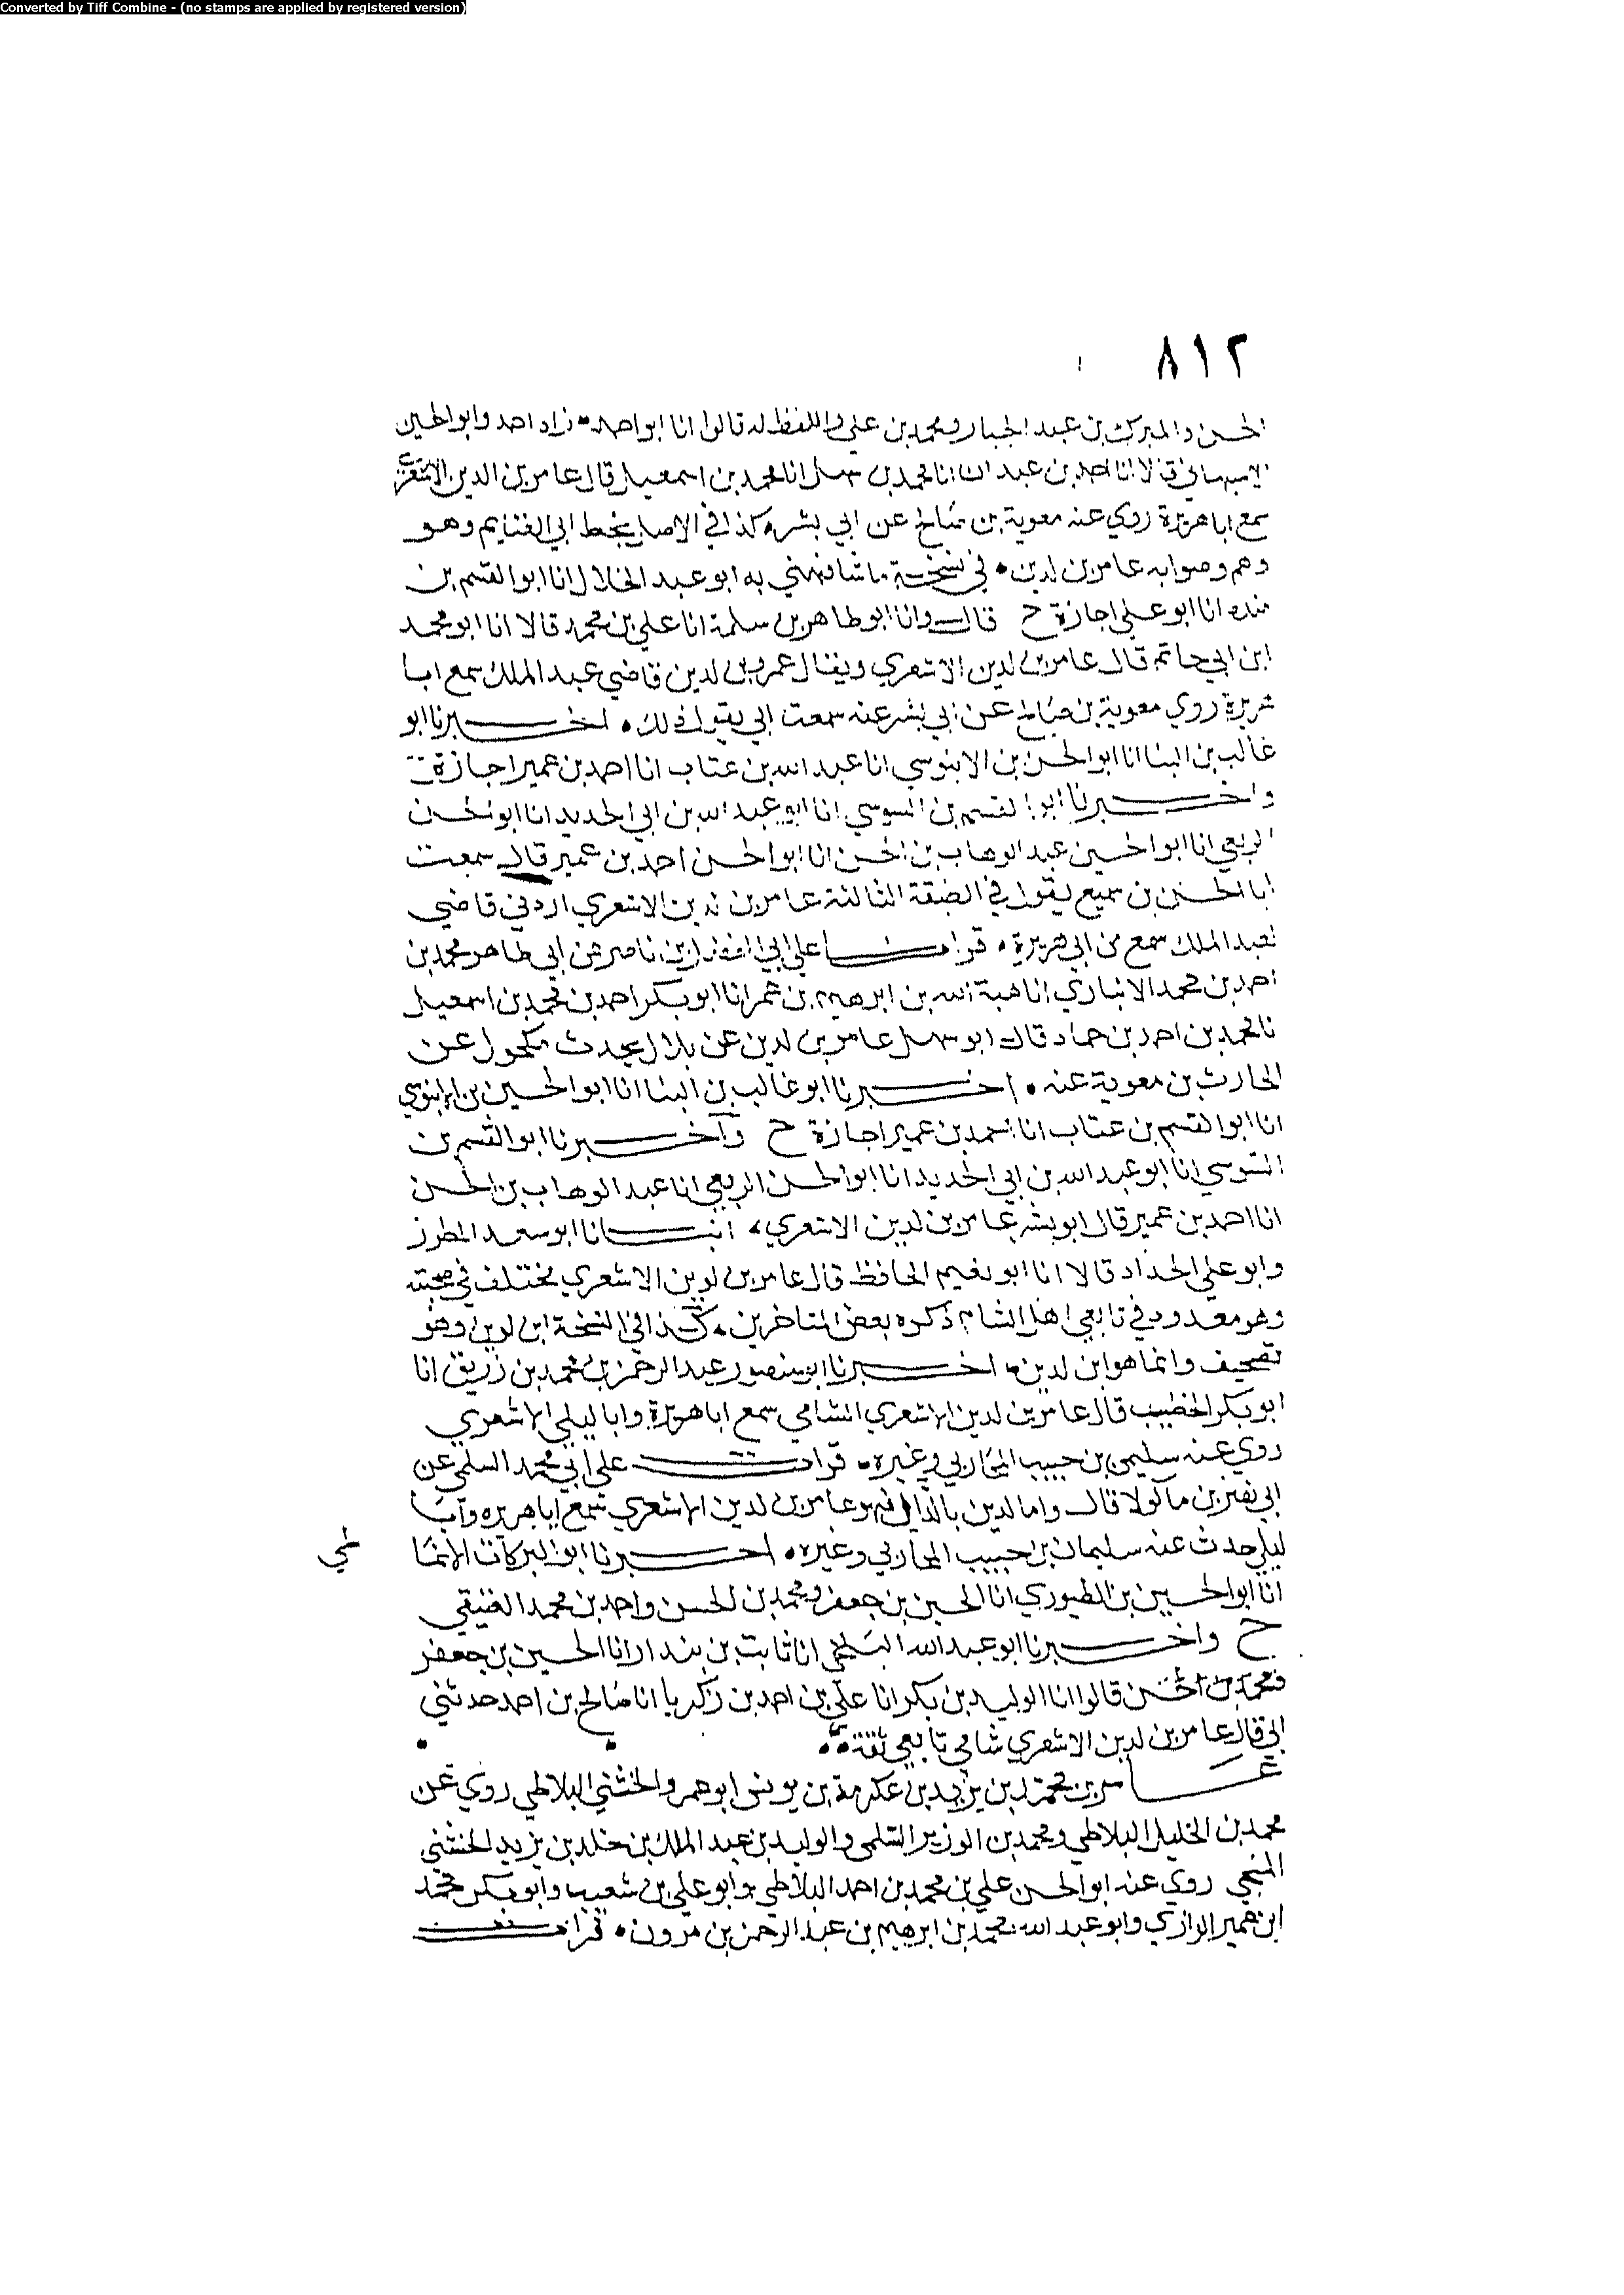 Converted by Tiff Combine - (no stamps are applied by registered version)
٨١٢
الحسن والمبرك بن عبد الجبار ومحمد بن علي واللفظ له قالوا انا ابو احمد • زاد احمد وابو الحسين
الاصبهاني قالا انا احمد بن عبدان انا محمد بن سهل انا محمد بن اسمعيل قال عامر بن الدين الاشعري
سمع ابا هريرة روي عنه معوية بن صالح عن ابي بشر • كذا في الاصل بخط ابي الغنايم وهو
وهم وصوابه عامر بن لدين • في نسخة ما شافهني به ابو عبد الخلال انا ابو القسم بن
منده انا ابو علي اجازة ح قال وانا ابو طاهر بن سلمة انا علي بن محمد قالا انا ابو محمد
ابن ابي حاتم قال عامر بن لدين الاشعري ويقال عمرو بن لدين قاضي عبد الملك سمع ابا
هريرة روي معوية بن صالح عن ابي بشر عنه سمعت ابي يقول ذلك • اخبرنا ابو
غالب بن البنا انا ابو الحسن بن الابنوسي انا عبد الله بن عتاب انا احمد بن عمير اجازة
واخبرنا ابو القسم بن السوسي انا ابو عبد الله بن ابي الحديد انا ابو الحسن
الربعي انا ابو الحسين عبد الوهاب بن الحسن انا ابو الحسن احمد بن عمير قال سمعت
ابا الحسن بن سميع يقول في الطبقة الثالثة عامر بن لدين الاشعري اردني قاضي
لعبد الملك سمع من ابي هريرة • قرانا علي ابي الفضل بن ناصر عن ابي طاهر محمد بن
احمد بن محمد الانباري انا هبة الله بن ابرهيم بن عمر انا ابو بكر احمد بن محمد بن اسمعيل
نا محمد بن احمد بن حماد قال ابو سهل عامر بن لدين عن بلال يحدث مكحول عن
الحارث بن معوية عنه • اخبرنا ابو غالب بن البنا انا ابو الحسين بن الابنوسي
انا ابو القسم بن عتاب انا احمد بن عمير اجازة ح واخبرنا ابو القسم بن
السوسي انا ابو عبد الله بن ابي الحديد انا ابو الحسن الربعي انا عبد الوهاب بن الحسن
انا احمد بن عمير قال ابو بشر عامر بن لدين الاشعري • انبانا ابو سعد المطرز
وابو علي الحداد قالا انا ابو نعيم الحافظ قال عامر بن لوين الاشعري مختلف في صحبته
وهو معدود في تابعي اهل الشام ذكره بعض المتاخرين • كذا في النسخة ابن لوين وهو
تصحيف وانما هو ابن لدين • اخبرنا ابو منصور عبد الرحمن بن محمد بن زريق انا
ابو بكر الخطيب قال عامر بن لدين الاشعري الشامي سمع ابا هريرة وابا ليلي الاشعري
روي عنه سليمن بن حبيب المحاربي وغيره • قرات علي ابي محمد السلمي عن
ابي نصر بن ماكولا قال واما لدين بالدال فهو عامر بن لدين الاشعري سمع ابا هريره وابا
ليلي حدث عنه سليمان بن حبيب المحاربي وغيره • اخبرنا ابو البركات الانما
طي
انا ابو الحسين بن الطيوري انا الحسين بن جعفر ومحمد بن الحسن واحمد بن محمد العتيقي
ح واخبرنا ابو عبد الله البلخي انا ثابت بن بندار انا الحسين بن جعفر
ومحمد بن الحسن قالوا انا الوليد بن بكر انا علي بن احمد بن زكريا انا صالح بن احمد حدثني
ابي قال عامر بن لدين الاشعري شامي تابعي ثقة ••
عامر بن محمد بن يزيد بن عكرمة بن يونس ابو عمرو الخشني البلاطي روي عن
محمد بن الخليل البلاطي ومحمد بن الوزير السلمي والوليد بن عبد الملك بن خلد بن يزيد الخشني
روي عنه ابو الحسن علي بن محمد بن احمد البلاطي وابو علي بن شعيب وابو بكر محمد
ابن عمير الرازي وابو عبد الله محمد بن ابرهيم بن عبد الرحمن بن مرون • قرات